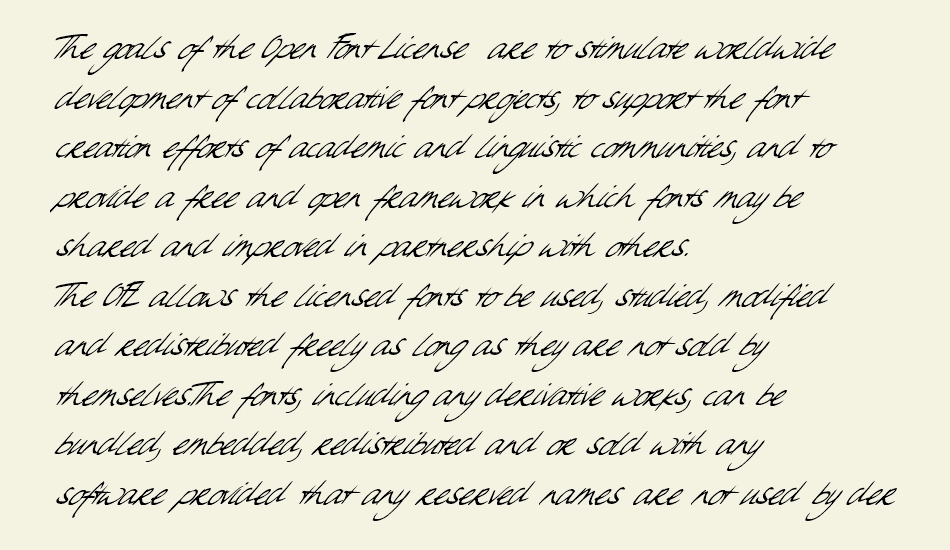 The goals of the Open Font License are to stimulate worldwide
development of collaborative font projects, to support the font
creation efforts of academic and linguistic communities, and to
provide a free and open framework in which fonts may be
shared and improved in partnership with others.
The OFL allows the licensed fonts to be used, studied, modified
and redistributed freely as long as they are not sold by
themselves.The fonts, including any derivative works, can be
bundled, embedded, redistributed and or sold with any
software provided that any reserved names are not used by der